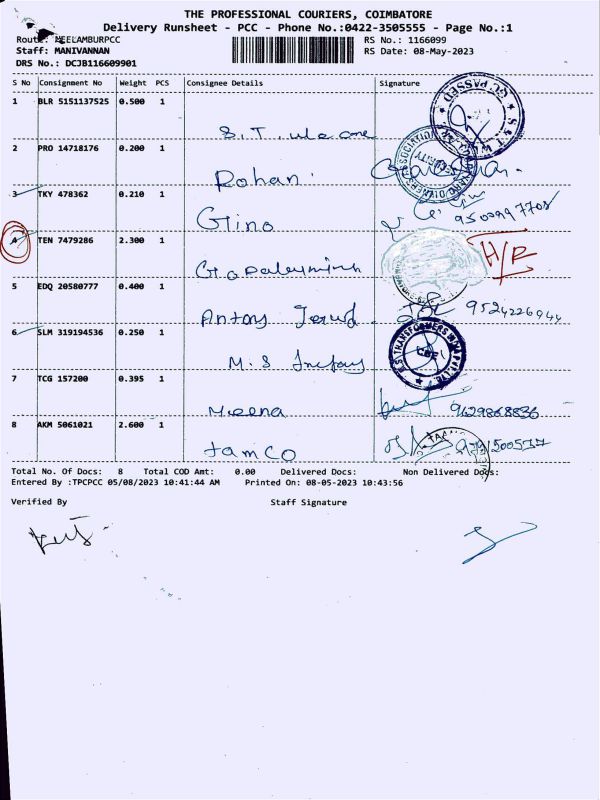 THE PROFESSIONAL COURIERS, COIMBATORE
Delivery Runsheet - PCC - Phone No.:0422-3505555 - Page No.:1
Route: NEELAMBURPCC RS No.: 1166099
Staff: MANIVANNAN RS Date: 08-May-2023
DRS No.: DCJB116609901
S No Consignment No Weight PCS Consignee Details Signature
1 BLR 5151137525 0.500 1
GC PASSED
S.T.
2 PRO 14718176 0.200 1
Rohan
3 TKY 478362 0.210 1
Gino 9500997708
4 TEN 7479286 2.300 1
H/R
5 EDQ 20580777 0.400 1
Antony 9524226944
6 SLM 319194536 0.250 1
M.S
7 TCG 157200 0.395 1
Meena 9629868836
8 AKM 5061021 2.600 1
tamco
Total No. Of Docs: 8 Total COD Amt: 0.00 Delivered Docs: Non Delivered Docs:
Entered By :TPCPCC 05/08/2023 10:41:44 AM Printed On: 08-05-2023 10:43:56
Verified By Staff Signature